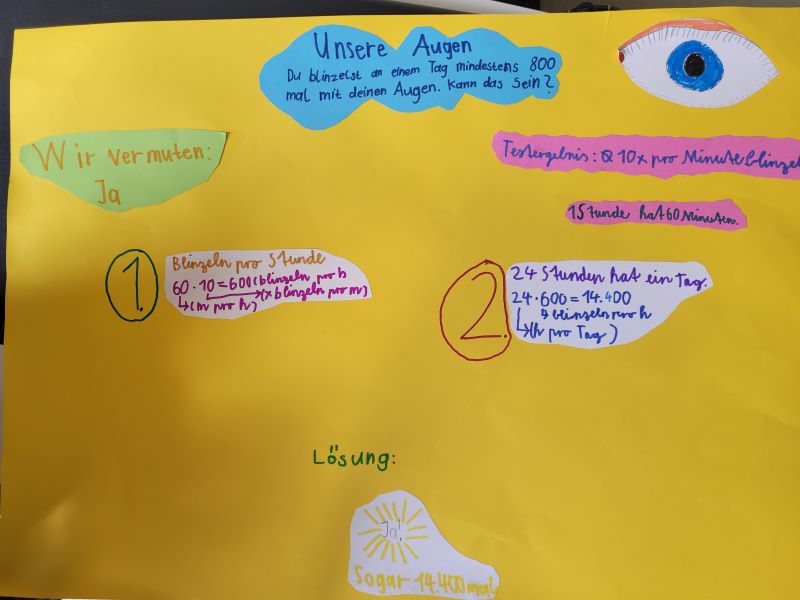 Unsere Augen
Du blinzelst an einem Tag mindestens 800
mal mit deinen Augen. Kann das sein?
Wir vermuten:
Ja
Testergebnis: Q 10x pro Minute blinzel
1 Stunde hat 60 Minuten.
1.
Blinzeln pro Stunde
60 · 10 = 600 (blinzeln pro h
(m pro h) (x blinzeln pro m)
2.
24 Stunden hat ein Tag.
24 · 600 = 14.400
blinzeln pro h
(h pro Tag)
Lösung:
Ja!
Sogar 14.400 mal